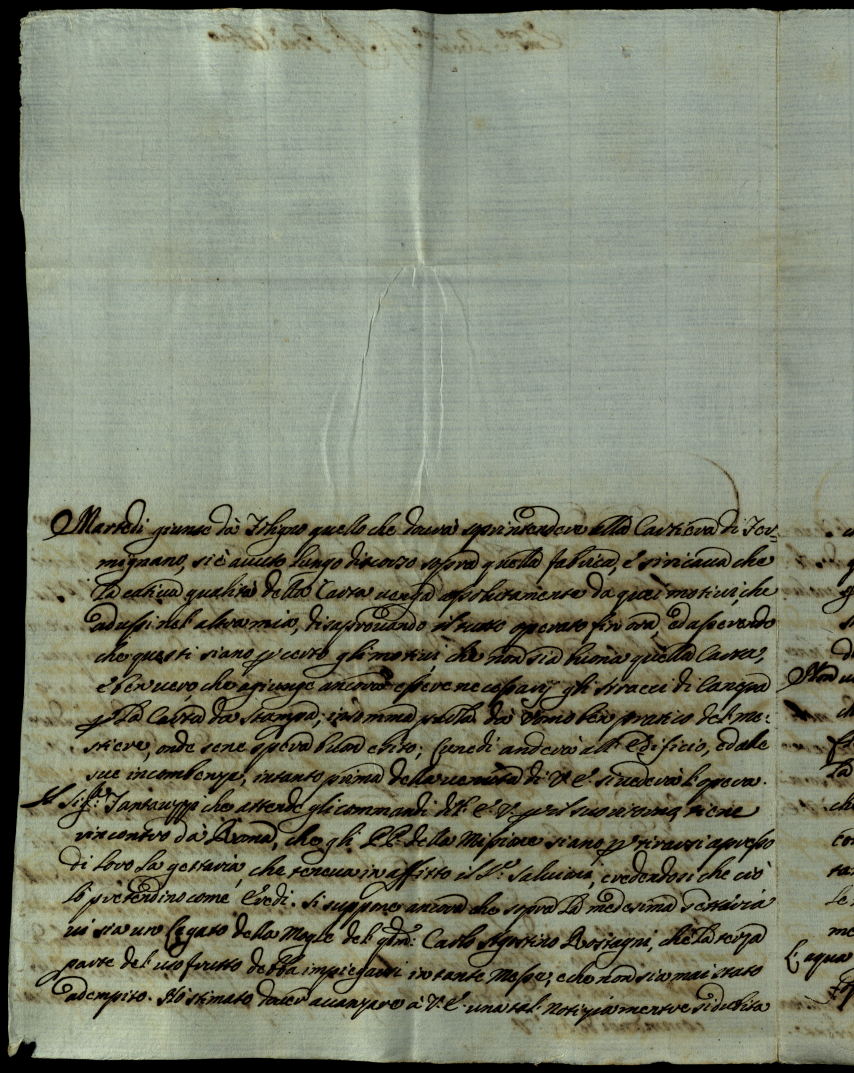 Martedi giunse dà Foligno quello che dourà soprintendere alla Cartiera di Fer-
mignano, si è auuto lungo discorzo sopra quella fabrica, e si ricaua che
la catiua qualità della Carta uenga assolutamente da quei motiui, che
adussi nel altra mia, disaprouando il tutto operato fin ora, ed asserendo
che questi siano per certo gli motiui che non sia buona quella Carta,
è ben uero che agiunge ancora essere necessarij gli stracci di
per la Carta da stampa; in somma parla da Uomo ben pratico del me-
stiere, onde se ne spera buon esito; Lunedi anderà all' Edificio, ed alle
sue incombenze, intanto prima della uenuta di V. E. si uederà l'opera.
Il Sig.r che attende gli commandi dell' E. V. per il suo ritorno, tiene
rincontro da Roma, che gli PP. della Missione siano per tirarsi apresso
di loro la che teneua in affitto il Salui credendosi che ciò
lo pretendino come Eredi. Si suppone ancora che sopra la medesima
ui sia un Legato della Mogle del qm: Carlo Agostino che la terza
parte del usofrutto debba impiegarsi in tante Messe, e che non sia mai stato
adempito. Hò stimato douer auanzare à V. E. una tal notizia mentre si dubita